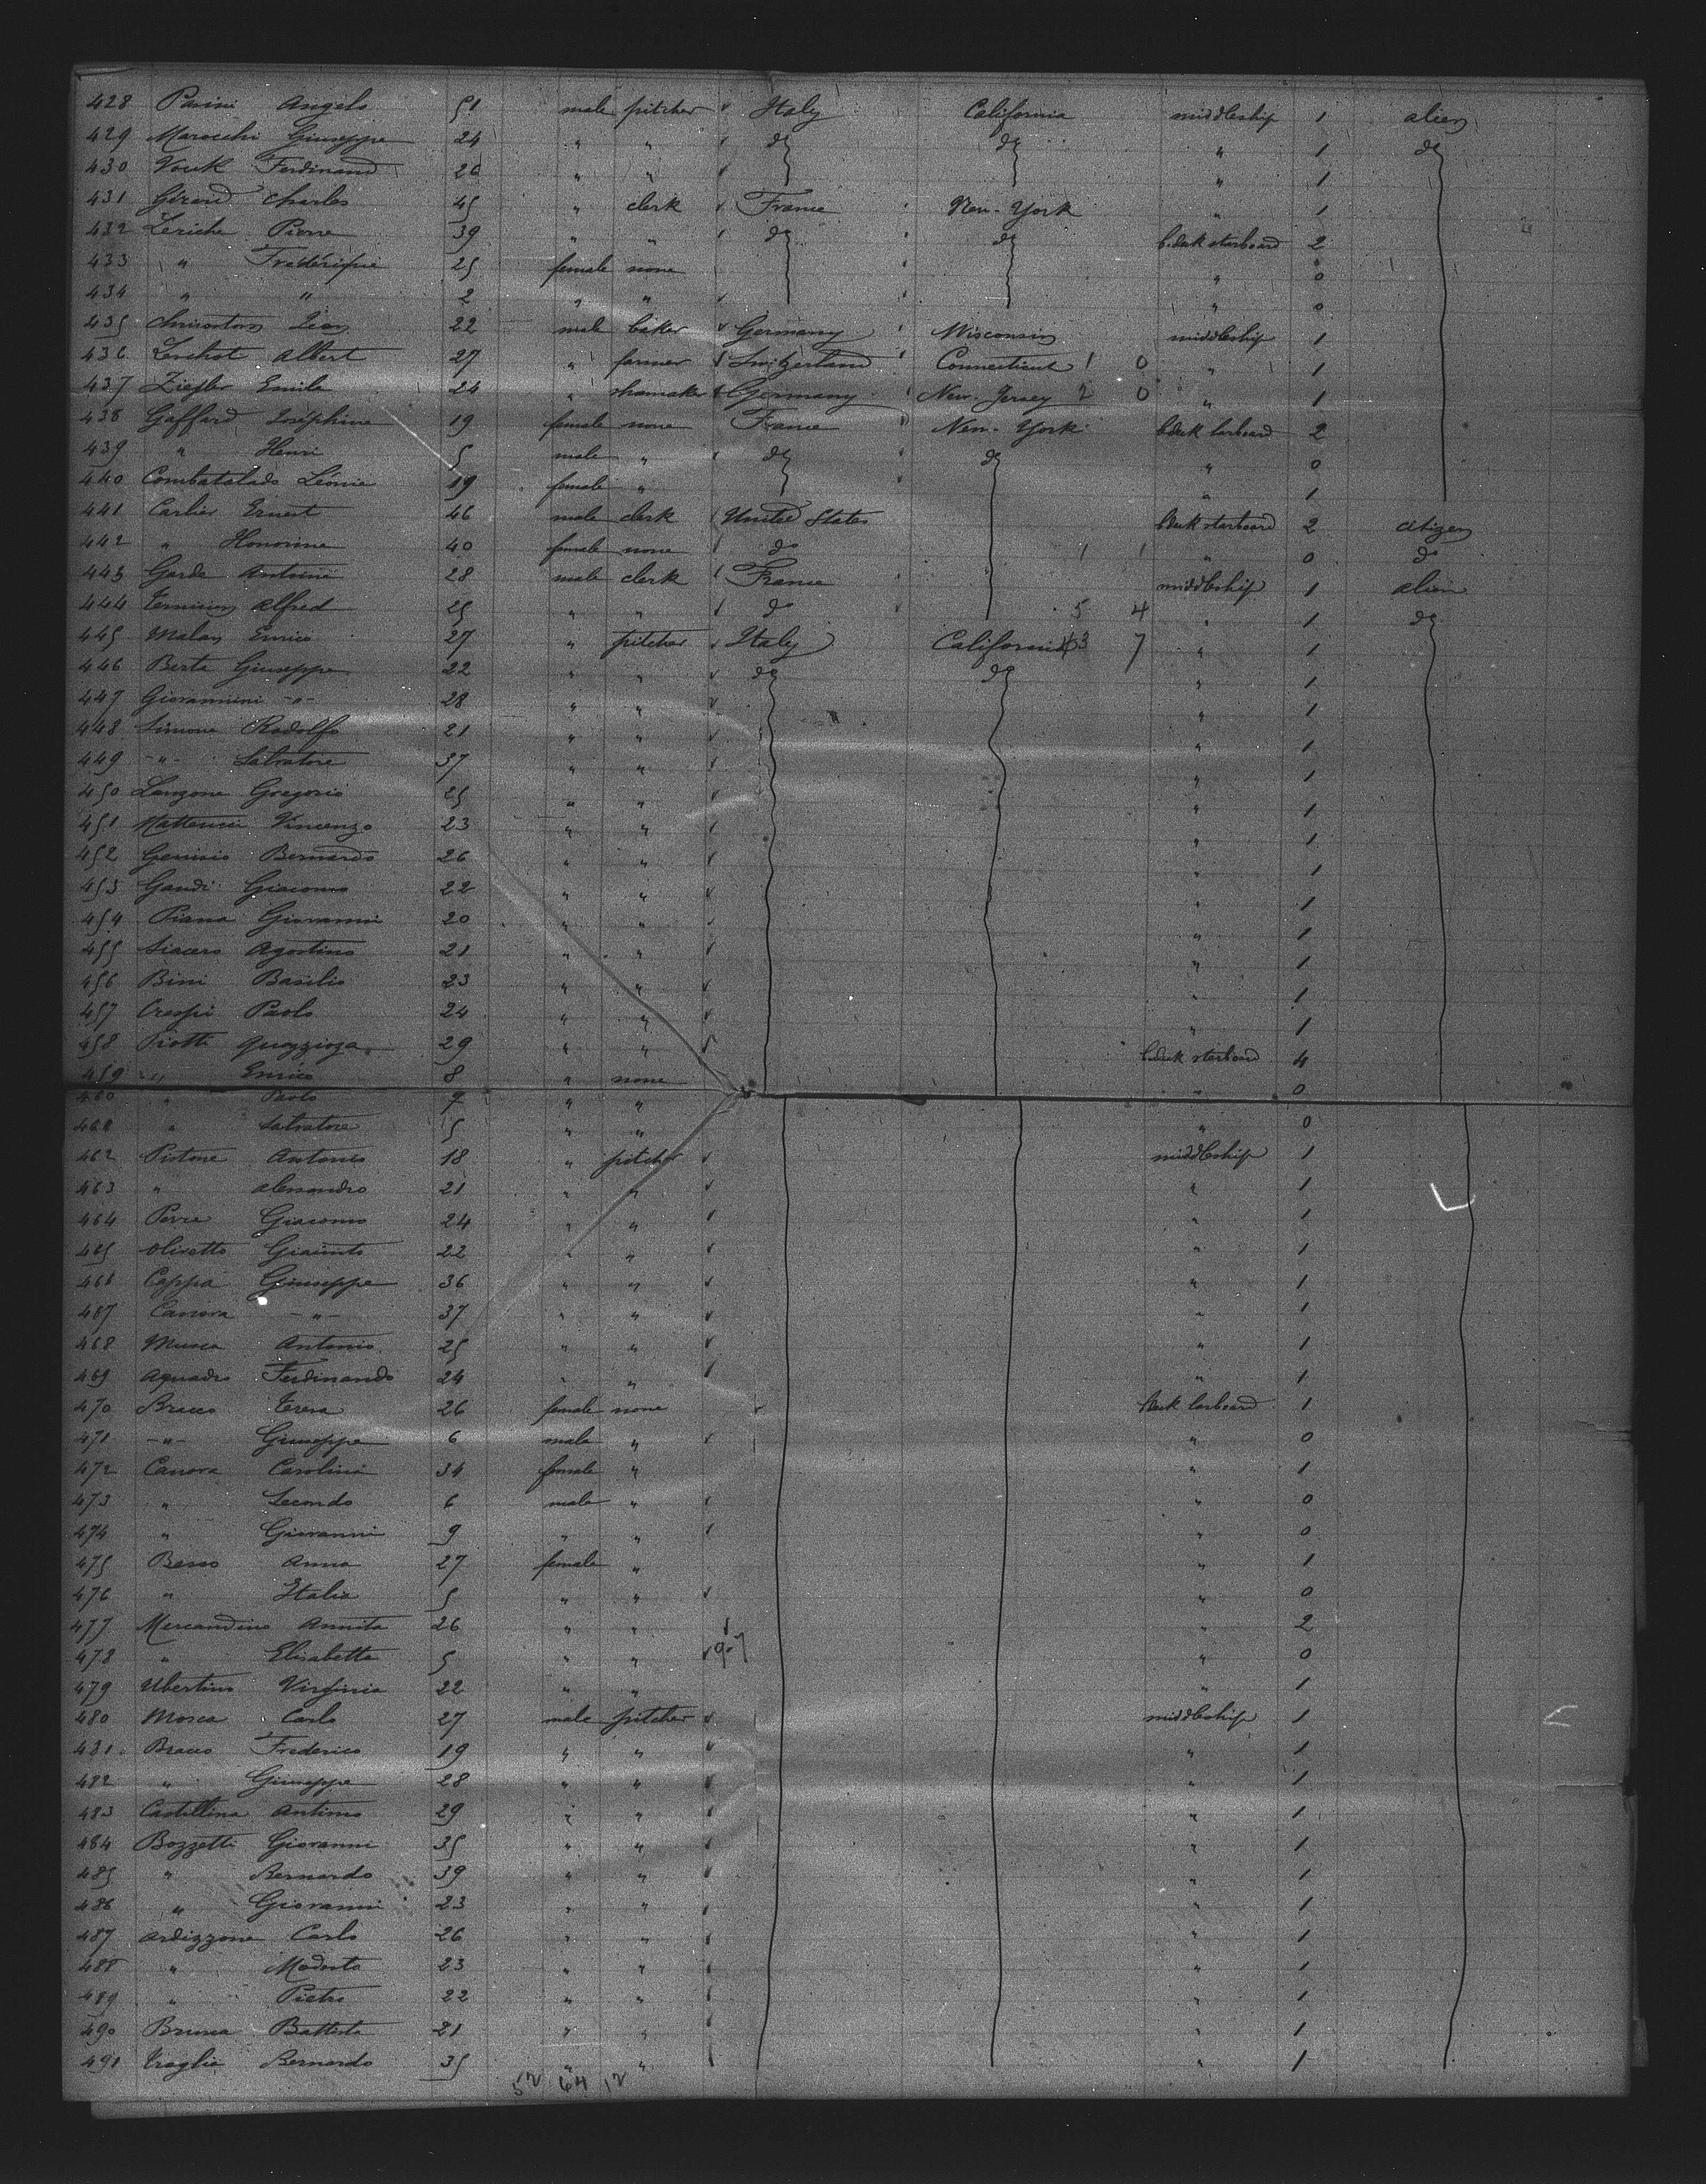 428 Parini Angelo 51 male pitcher Italy California middleship 1 alien
429 Marocchi Giuseppe 24 " " do do " 1 do
430 Vouk Ferdinand 26 " " " 1
431 Girard Charles 45 " clerk France New-York " 1
432 Leriche Pierre 39 " " do do b.deck starboard 2
433 " Frédérique 25 female none " 0
434 " " 2 " " " 0
435 Léon 22 male baker Germany Wisconsin middleship 1
436 Albert 27 " farmer Switzerland Connecticut 1 0 " 1
437 Ziegler Emile 24 " shomaker Germany New-Jersey 2 0 " 1
438 Gaffard Joséphine 19 female none France New-York b.deck larboard 2
439 " Henri 5 male " do do " 0
440 Combatalade Léonie 19 female " " 1
441 Carlier Ernest 46 male clerk United States b.deck starboard 2 citizen
442 " Honorine 40 female none do 1 1 " 0 do
443 Garde Antoine 28 male clerk France middleship 1 alien
444 Alfred 25 " " do 5 4 " 1 do
445 Malan Enrico 27 " pitcher Italy California 63 7 " 1
446 Berta Giuseppe 22 " " do do " 1
447 Giovannini -"- 28 " " " 1
448 Simone Rodolfo 21 " " " 1
449 -"- Salvatore 37 " " " 1
450 Lanzone Gregorio 25 " " " 1
451 Matteucci Vincenzo 23 " " " 1
452 Genisio Bernardo 26 " " " 1
453 Gaudi Giacomo 22 " " " 1
454 Piana Giovanni 20 " " " 1
455 Siacero Agostino 21 " " " 1
456 Bini Basilio 23 " " " 1
457 Crespi Paolo 24 " " " 1
458 Piotti 29 " " b.deck starboard 4
459 " Enrico 8 " none " 0
460 " Paolo 7 " "
461 " Salvatore 5 " " " 0
462 Pistone Antonio 18 " pitcher middleship 1
463 " Alessandro 21 " " " 1
464 Giacomo 24 " " " 1
465 Olivetto Giacinto 22 " " " 1
466 Cappia Giuseppe 36 " " " 1
467 Canova -"- 37 " " " 1
468 Musca Antonio 25 " " " 1
469 Aquadro Ferdinando 24 " " " 1
470 Bracco Teresa 26 female none b.deck larboard 1
471 -"- Giuseppe 6 male " " 0
472 Canova Carolina 34 female " " 1
473 " Secondo 6 male " " 0
474 " Giovanni 9 " " " 0
475 Besso Anna 27 female " " 1
476 " Italia 5 " " " 0
477 Mercandino Annita 26 " " " 2
478 " Elisabetta 5 " " " 0
479 Ubertino Virginia 22 " " " 1
480 Mosca Carlo 27 male pitcher middleship 1
481 Bracco Frederico 19 " " " 1
482 " Giuseppe 28 " " " 1
483 Castellina Antimo 29 " " " 1
484 Bozzetti Giovanni 35 " " " 1
485 " Bernardo 39 " " " 1
486 " Giovanni 23 " " " 1
487 Ardizzone Carlo 26 " " " 1
488 " Modesto 23 " " " 1
489 " Pietro 22 " " " 1
490 Brusca Battista 21 " " " 1
491 Traglia Bernardo 35 " " " 1
52 64 12